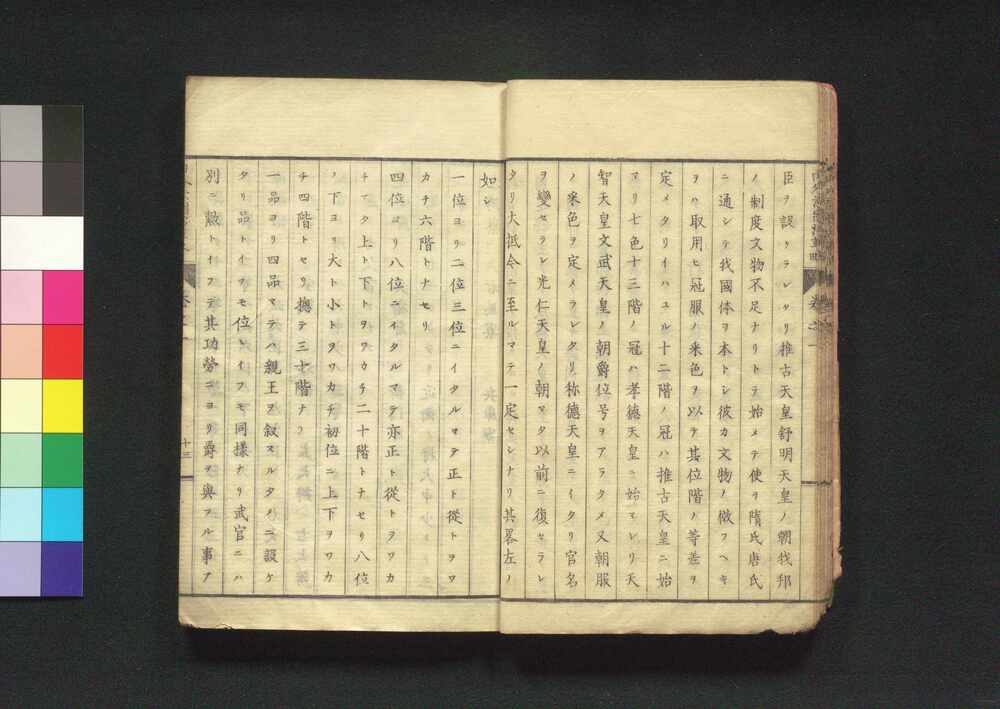 臣ヲ設ケラレタリ推古天皇舒明天皇ノ朝我邦
ノ制度文物不足ナリトテ始メテ使ヲ隋氏唐氏
ニ通シテ我國体ヲ本トシ彼カ文物ノ倣フヘキ
ヲハ取用ヒ冠服ノ釆色ヲ以テ其位階ノ等差ヲ
定メタリイハユル十二階ノ冠ハ推古天皇ニ始
マリ七色十三階ノ冠ハ孝德天皇ニ始マレリ天
智天皇文武天皇ノ朝爵位号ヲアラタメ又朝服
ノ釆色ヲ定メラレタリ称德天皇ニイタリ官名
ヲ變セラレ光仁天皇ノ朝マタ以前ニ復セラレ
タリ大抵今ニ至ルマテ一定セシナリ其畧左ノ
如シ
一位ヨリ二位三位ニイタルマテ正ト從トヲワ
カチ六階トナセリ
四位ヨリ八位ニイタルマテ亦正ト從トヲワカ
チマタ上ト下トヲワカチ二十階トナセリ八位
ノ下ヨリ大ト小トヲワカチ初位ニ上下ヲワカ
チ四階トセリ摠テ三十階ナリ
一品ヨリ四品マテハ親王ヲ叙スルタメニ設ケ
タリ品トイフモ位トイフモ同樣ナリ武官ニハ
別ニ勲トイフテ其功勞ニヨリ爵ヲ與フル事ア
十三